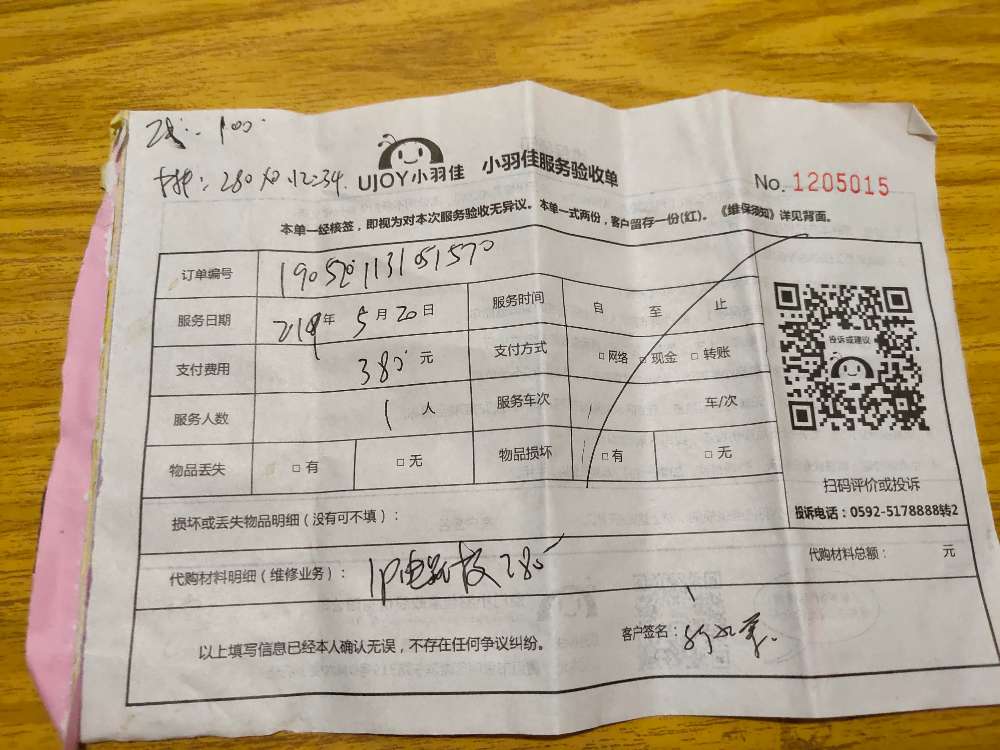 100
280
UJOY小羽佳 小羽佳服务验收单
No. 1205015
本单一经核签，即视为对本次服务验收无异议。本单一式两份，客户留存一份(红)。《维保须知》详见背面。
订单编号 190520113151570
服务日期 2019年5月20日 服务时间 自 至 止
支付费用 380元 支付方式 □网络 □现金 □转账
服务人数 1人 服务车次 车/次
物品丢失 □有 □无 物品损坏 □有 □无
投诉或建议
扫码评价或投诉
投诉电话：0592-5178888转2
损坏或丢失物品明细（没有可不填）：
代购材料明细（维修业务）： 1P电路板280
代购材料总额： 元
以上填写信息已经本人确认无误，不存在任何争议纠纷。 客户签名：